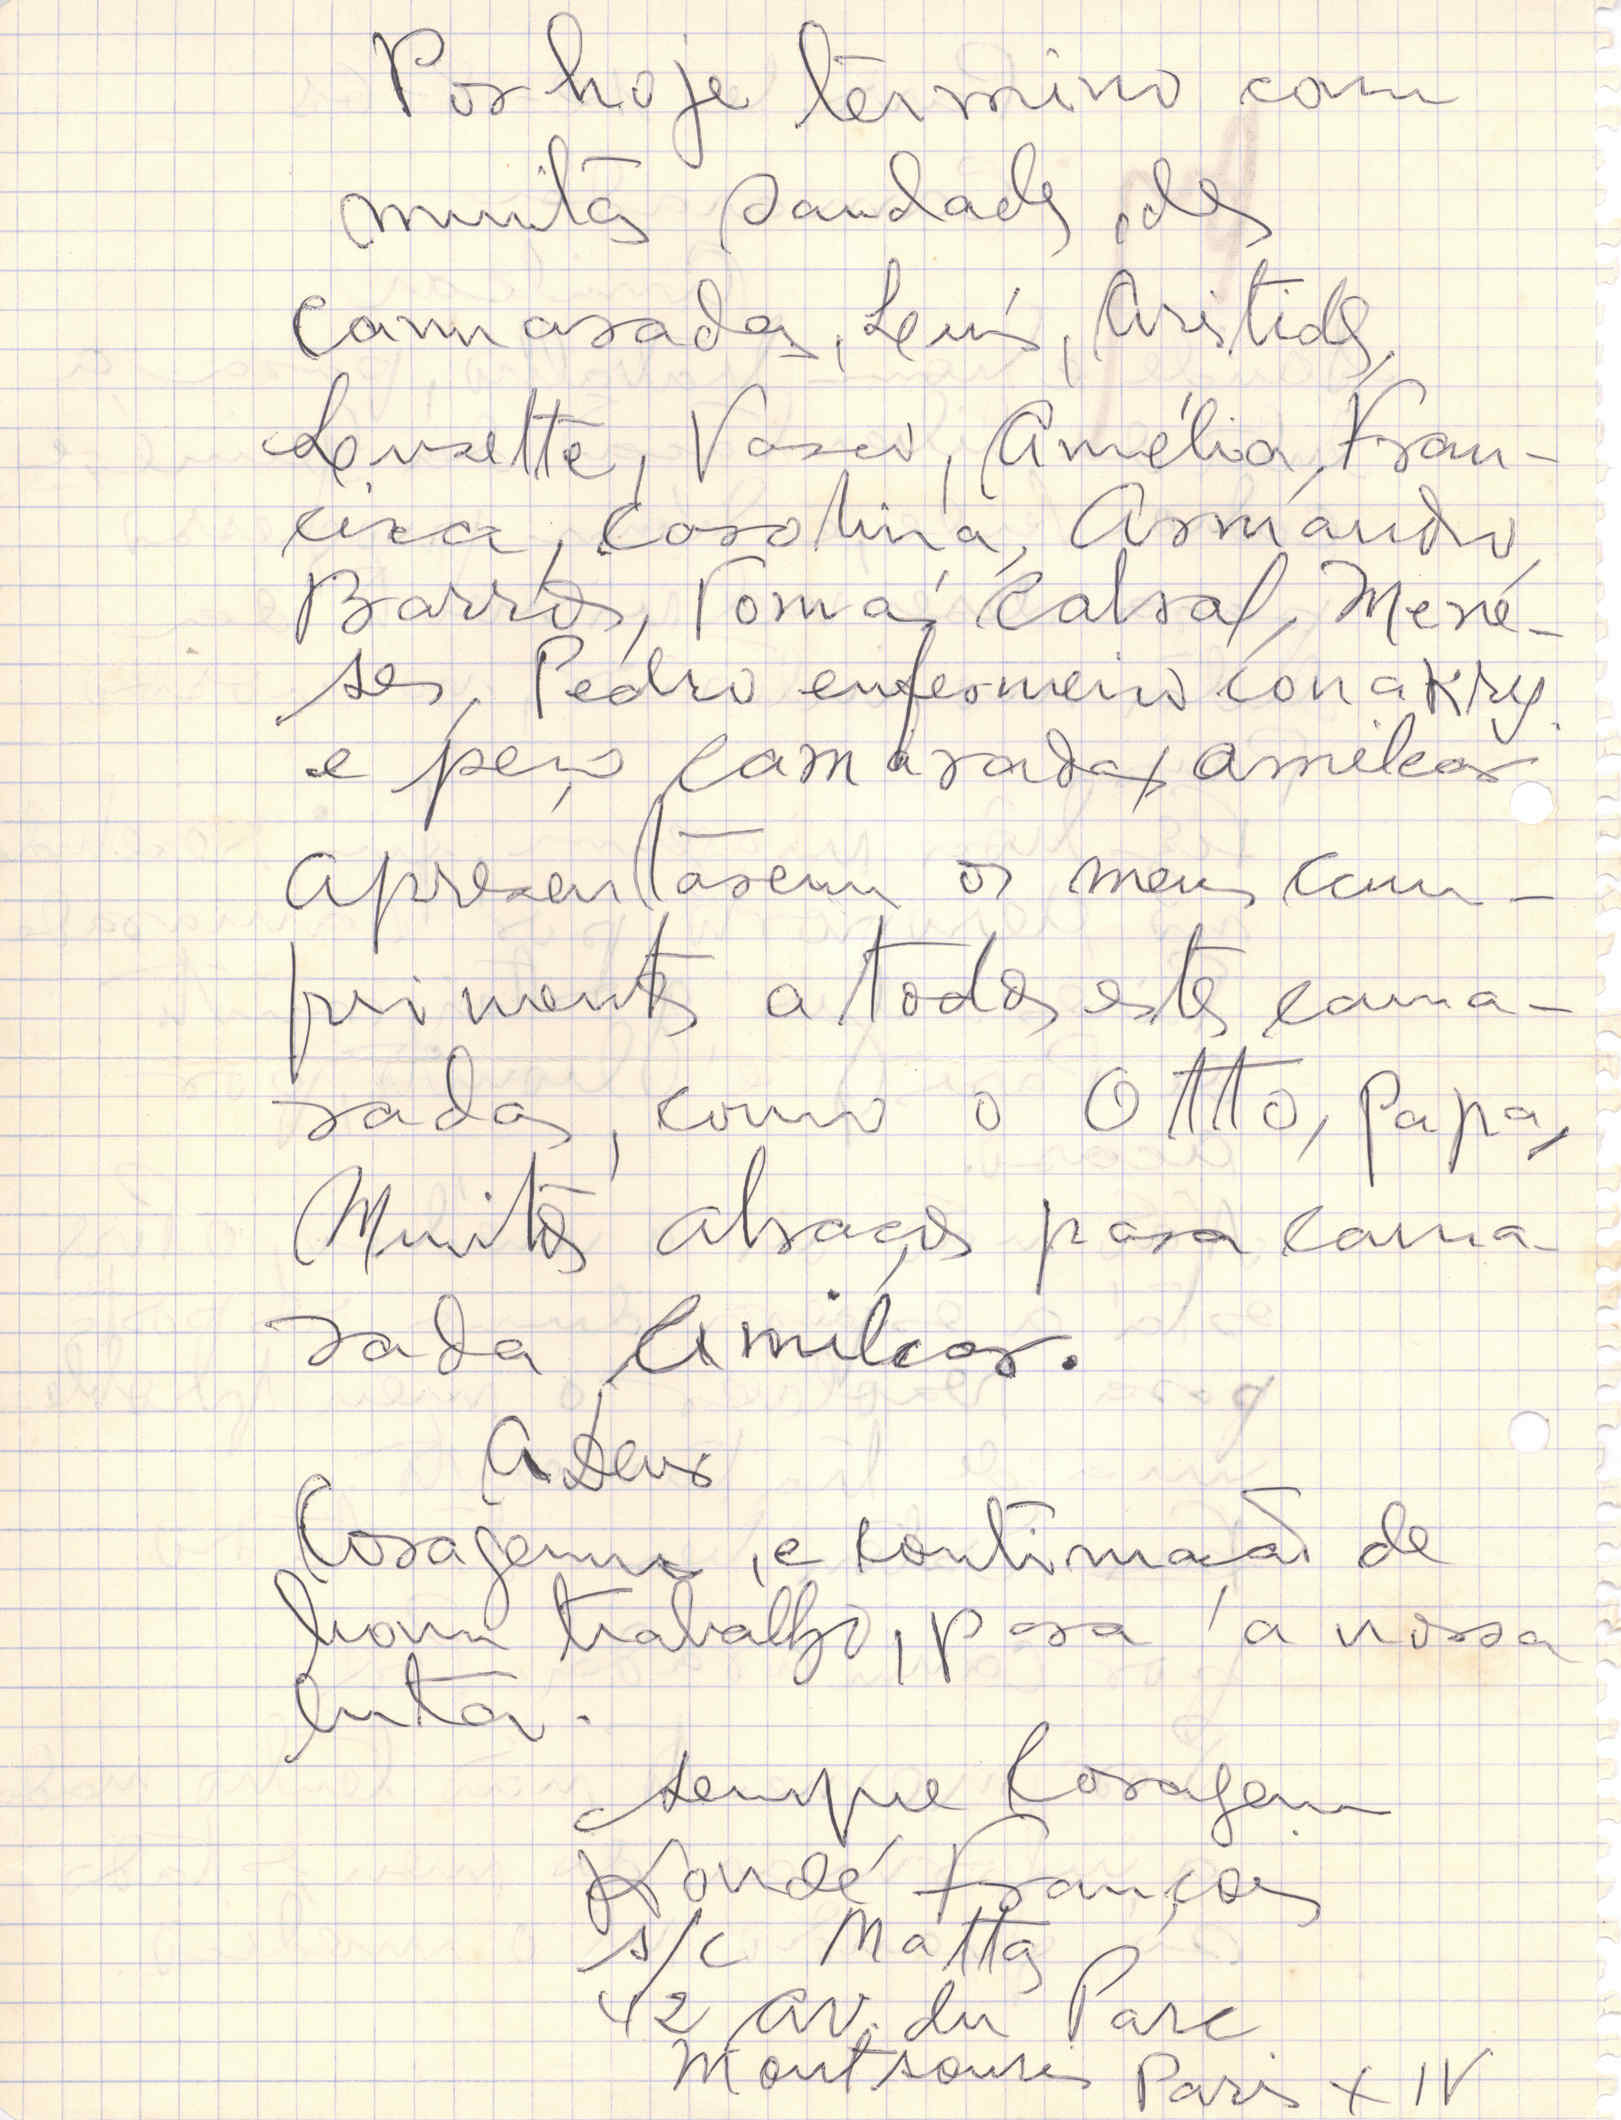 Por hoje termino com
muitas saudades, des
camaradas, Luís, Aristides,
Leusette, Vasco, Amélia, Fran-
cisca, Carolina, Armando,
Barros, Tomás Cabral, Mené-
ses, Pedro enfermeiro Conakry
e peço camarada, Amilcar
apresentarem os meus cum-
primentos a todos estes cama-
radas, como o Otto, Papa,
Muitos abraços para cama-
rada Amilcar.
ADeus
Coragem, e continuação de
bom trabalho, para a nossa
luta.
sempre Coragem
Kondé François
s/c Matta
42 av. du Parc
Montsouris Paris XIV